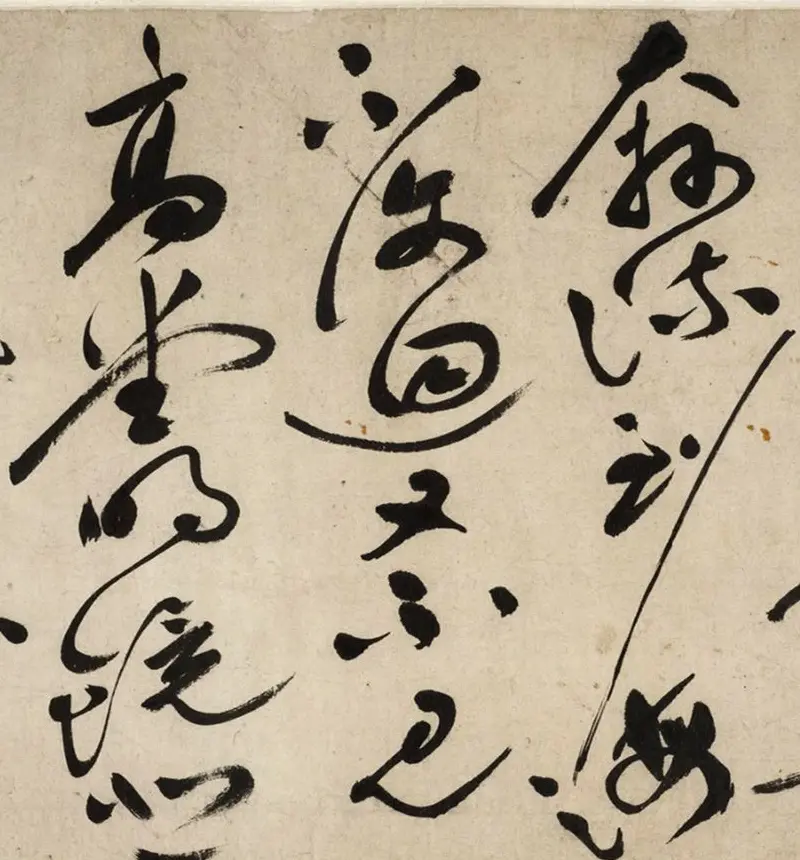 奔流到海
不復迴又不見
高堂明鏡悲